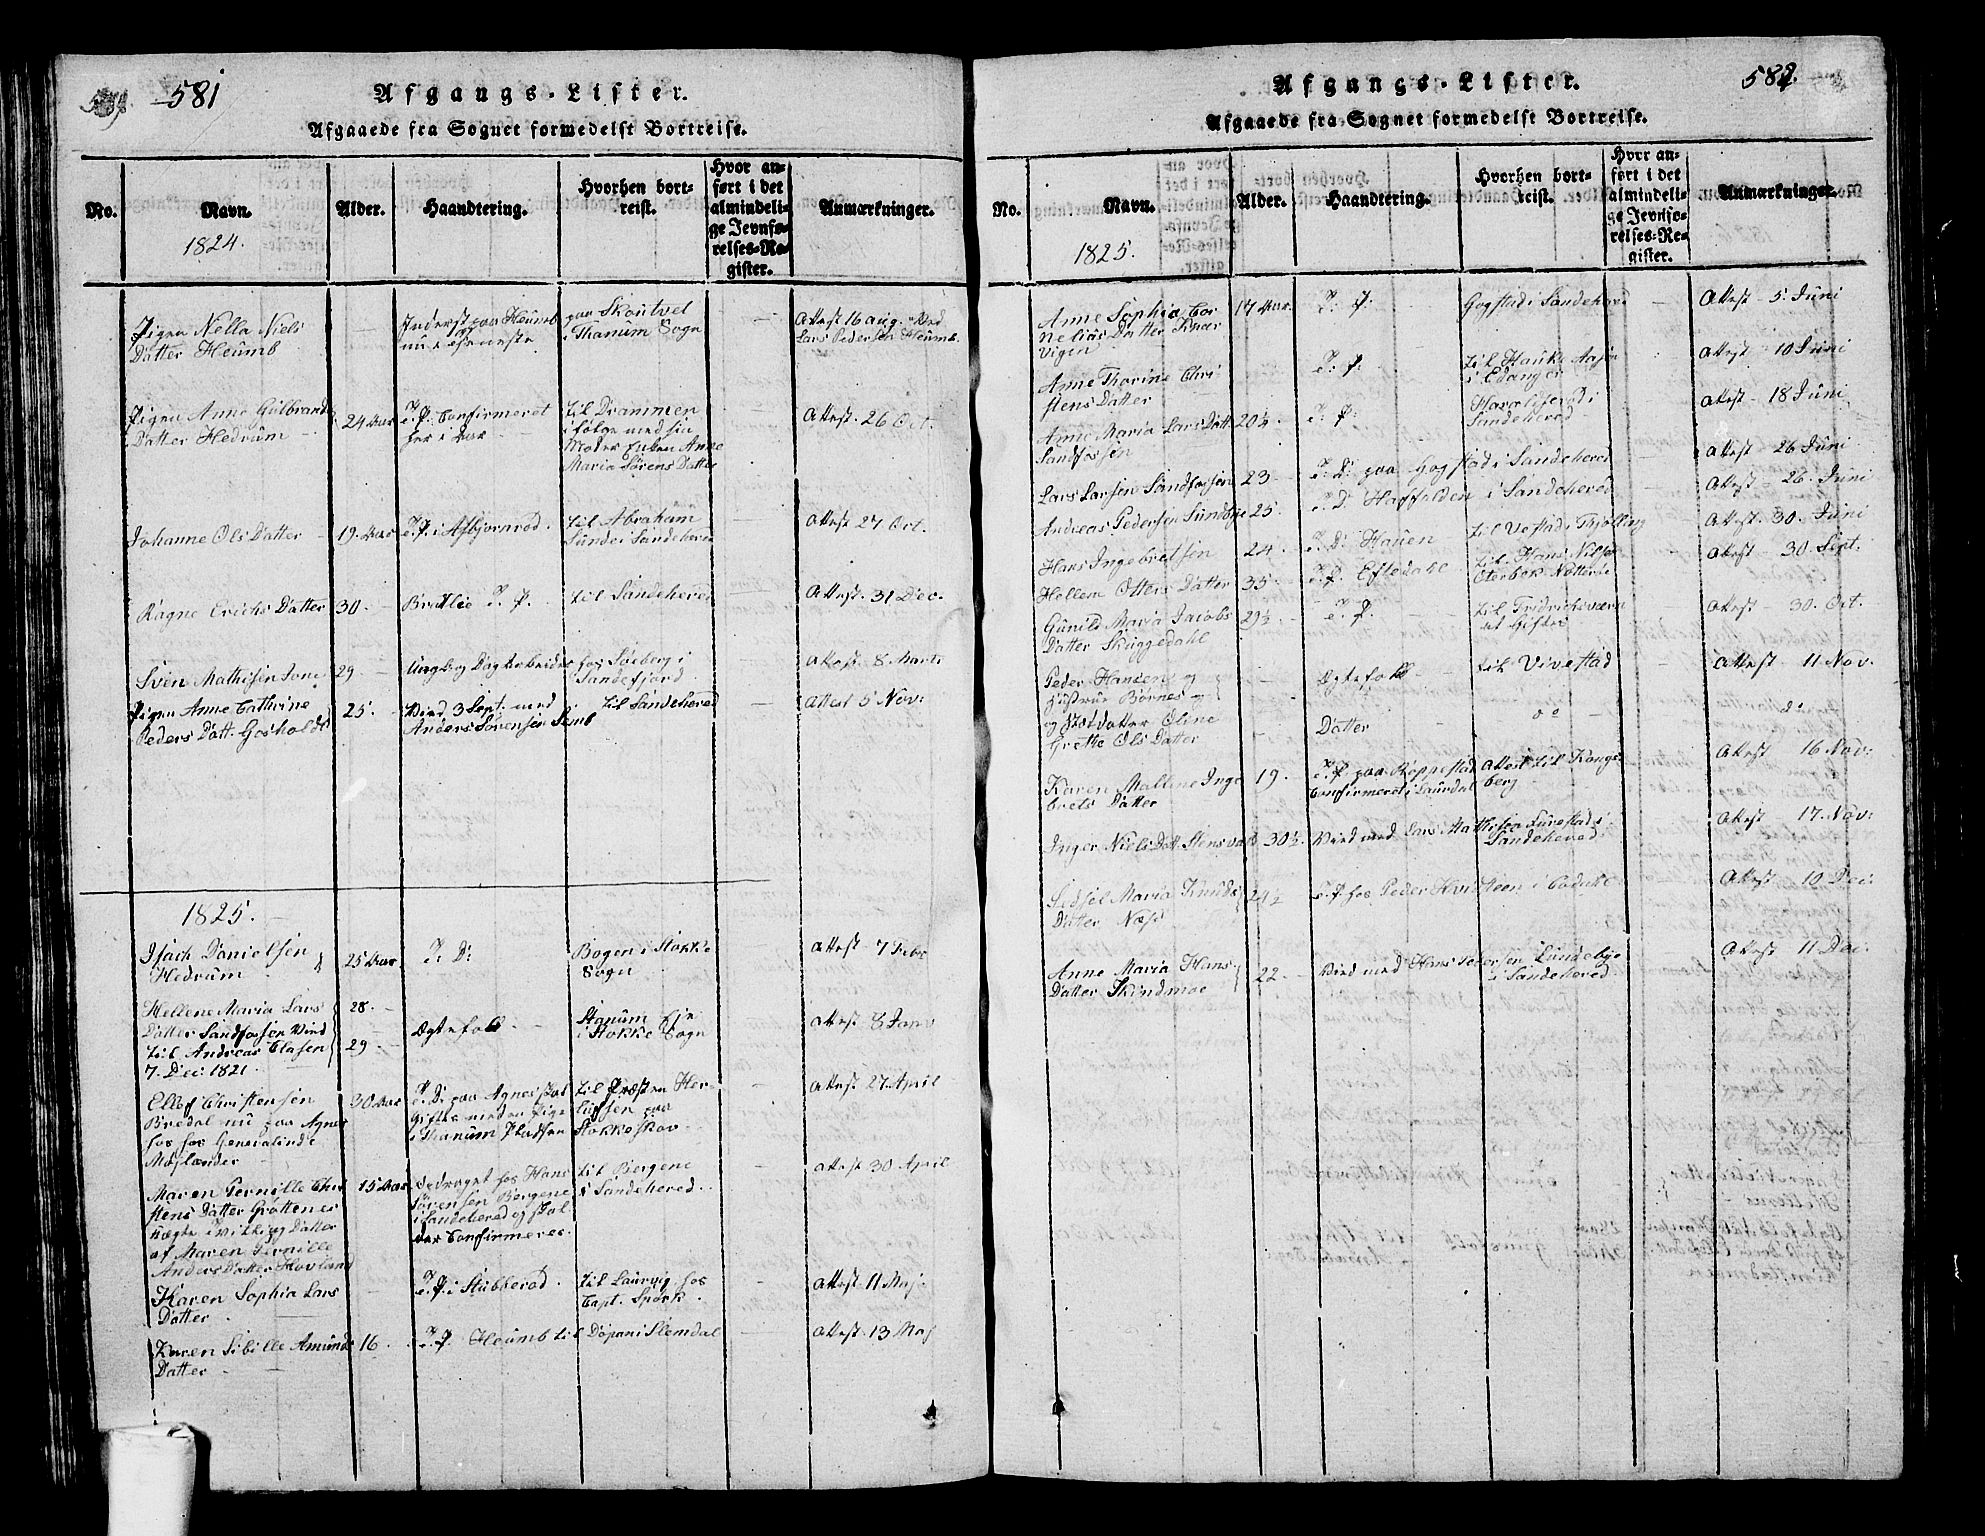 581
Afgangs-Lister.
Afgaaede fra Sognet formedelst Bortreise.
No.
Navn.
1824.
Alder.
Haandtering.
Hvorhen bort-
reist.
Hvor an-
ført i det
almindeli-
ge Jevnfø-
relses-Re-
gister.
Anmærkninger.
Pigen Nella Niels
Datter Heumb
Inderst paa Heumb
nu tjeneste
paa Skontvet
i Thanum Sogn
Attest 16 Aug.
Lars Pedersen Heumb.
Pigen Anne Gulbrands
Datter Hedrum
24 Aar
T. P. Confirmeret
her i
til Drammen
i følge med sin
Moder Enken Anne
Maria Sørens Datter
Attest. 26 Oct.
Johanne Ols Datter
19. Aar
T. P. i Asbjørnrød.
til Abraham
Sunde i Sandeherred
Attest 27 Oct.
Ragne Erichs Datter
30.
Bratlie T. P.
til Sandeherred
Attest. 31 Dec.
Sven Mathisen
29
Ungk og Dagarbeider
hos Søeberg i
Sandefjord.
Attest. 8 Marts
Pigen Anne Cathrine
Peders Datt. Gosholdt
25.
Vied 3 Sept. med
Anders Sørensen
til Sandeherred
Attest 5 Nov:
1825.
Isach Danielsen
Hedrum
25 Aar
T. D:
Bogen i Stokke
Sogn
Attest 7 Febr
Hellene Maria Lars
Datter Sandfossen Viid
til Andreas Clasen
7. Dec: 1821.
28.
29
Ægtefolk.
Stanum
i Stokke Sogn
Attest 8 Janv
Ellef Christensen
Bredal nu paa Agnes
hos Generalinde
Møslander
30 Aar
T. D: paa Agnes skal
Giftes med en Pige
i Thanum Pladsen
til Præsten Her
lufsen paa
Stokkeskov.
Attest 27 April
Maren Pernille Chri
stens Datter Grottenes
Uægte Tvilling Datter
af Maren Pernille
Anders Datter Hovland
15 Aar
opdraget hos Hans
Sørensen Bergene
i Sandeherred og skal
der Confirmeres.
til Bergene
i Sandeherred.
Attest 30 April
Karen Sophia Lars
Datter
T. P. i Stubberød.
til Laurvig hos
Capt. Spørk.
Attest 11 Maj
Karen Sibille Amunds
Datter
16.
T. P. Heumb
til Døpan i Slemdal
Attest 13 Maj
582.
Afgangs-Lister.
Afgaaede fra Sognet formedelst Bortreise.
No.
Navn.
1825.
Alder.
Haandtering.
Hvorhen bort-
reist.
Hvor an-
ført i det
almindeli-
ge Jevnfø-
relses-Re-
gister.
Anmærkninger.
Anne Sophia Cor
nelias Datter
vigen
17 Aar.
T. P.
Gogstad i Sandeherred
Attest 5. Juni
Anne Thorine Chri
stens Datter
T. P.
til Hauke
i Edanger
Attest 10 Juni
Anne Maria Lars Datt
Sandfossen
20½
T. P.
i
Sandeherred
Attest 18 Juni
Lars Larsen Sandfossen
23
T. D: paa Gogstad i Sandeherred
Attest 26 Juni
Andreas Pedersen Sundbye
25.
T. D. Haffalden i Sandeherred
Attest 26. Juni
Hans Ingebretsen
24.
T. D: Hauen
til Vestad i Thjølling
Attest. 30. Juni
Hellem Otters Datter
35
T. P. Efledahl
til Hans Nilsen
Oterbek Nøtterøe
Attest 30 Sept.
Gunild Maria Jacobs
Datter Skuggedahl
29½
T. P.
til Fridrichsværn
at Gifte
Attest 30. Oct.
Peder Hansen og
Hustrue Børnes
og Datter Oline
Grethe Ols Datter
Ægtefolk
Datter
til Vivestad
do
Attest 11 Nov.
do
Karen Mallene Inge
brets Datter
19.
T. P. paa Reppestad
Confirmeret i Laurdal
Attest til Kongs
berg
Attest 16 Nov:
Inger Niels Datt. Stensvalt
30½.
Viid med Lars Mathisen Lunestad i
Sandeherred
Attest 17 Nov:
Sidsel Maria Knuds
Datter Næss
24½
T. P. hos Peder Kvisteen i
Attest 10 Dec:
Anne Maria Hans
Datter Skindmoe
22
Viid med Hans Pedersen Lundebye
i Sandeherred
Attest 11 Dec.